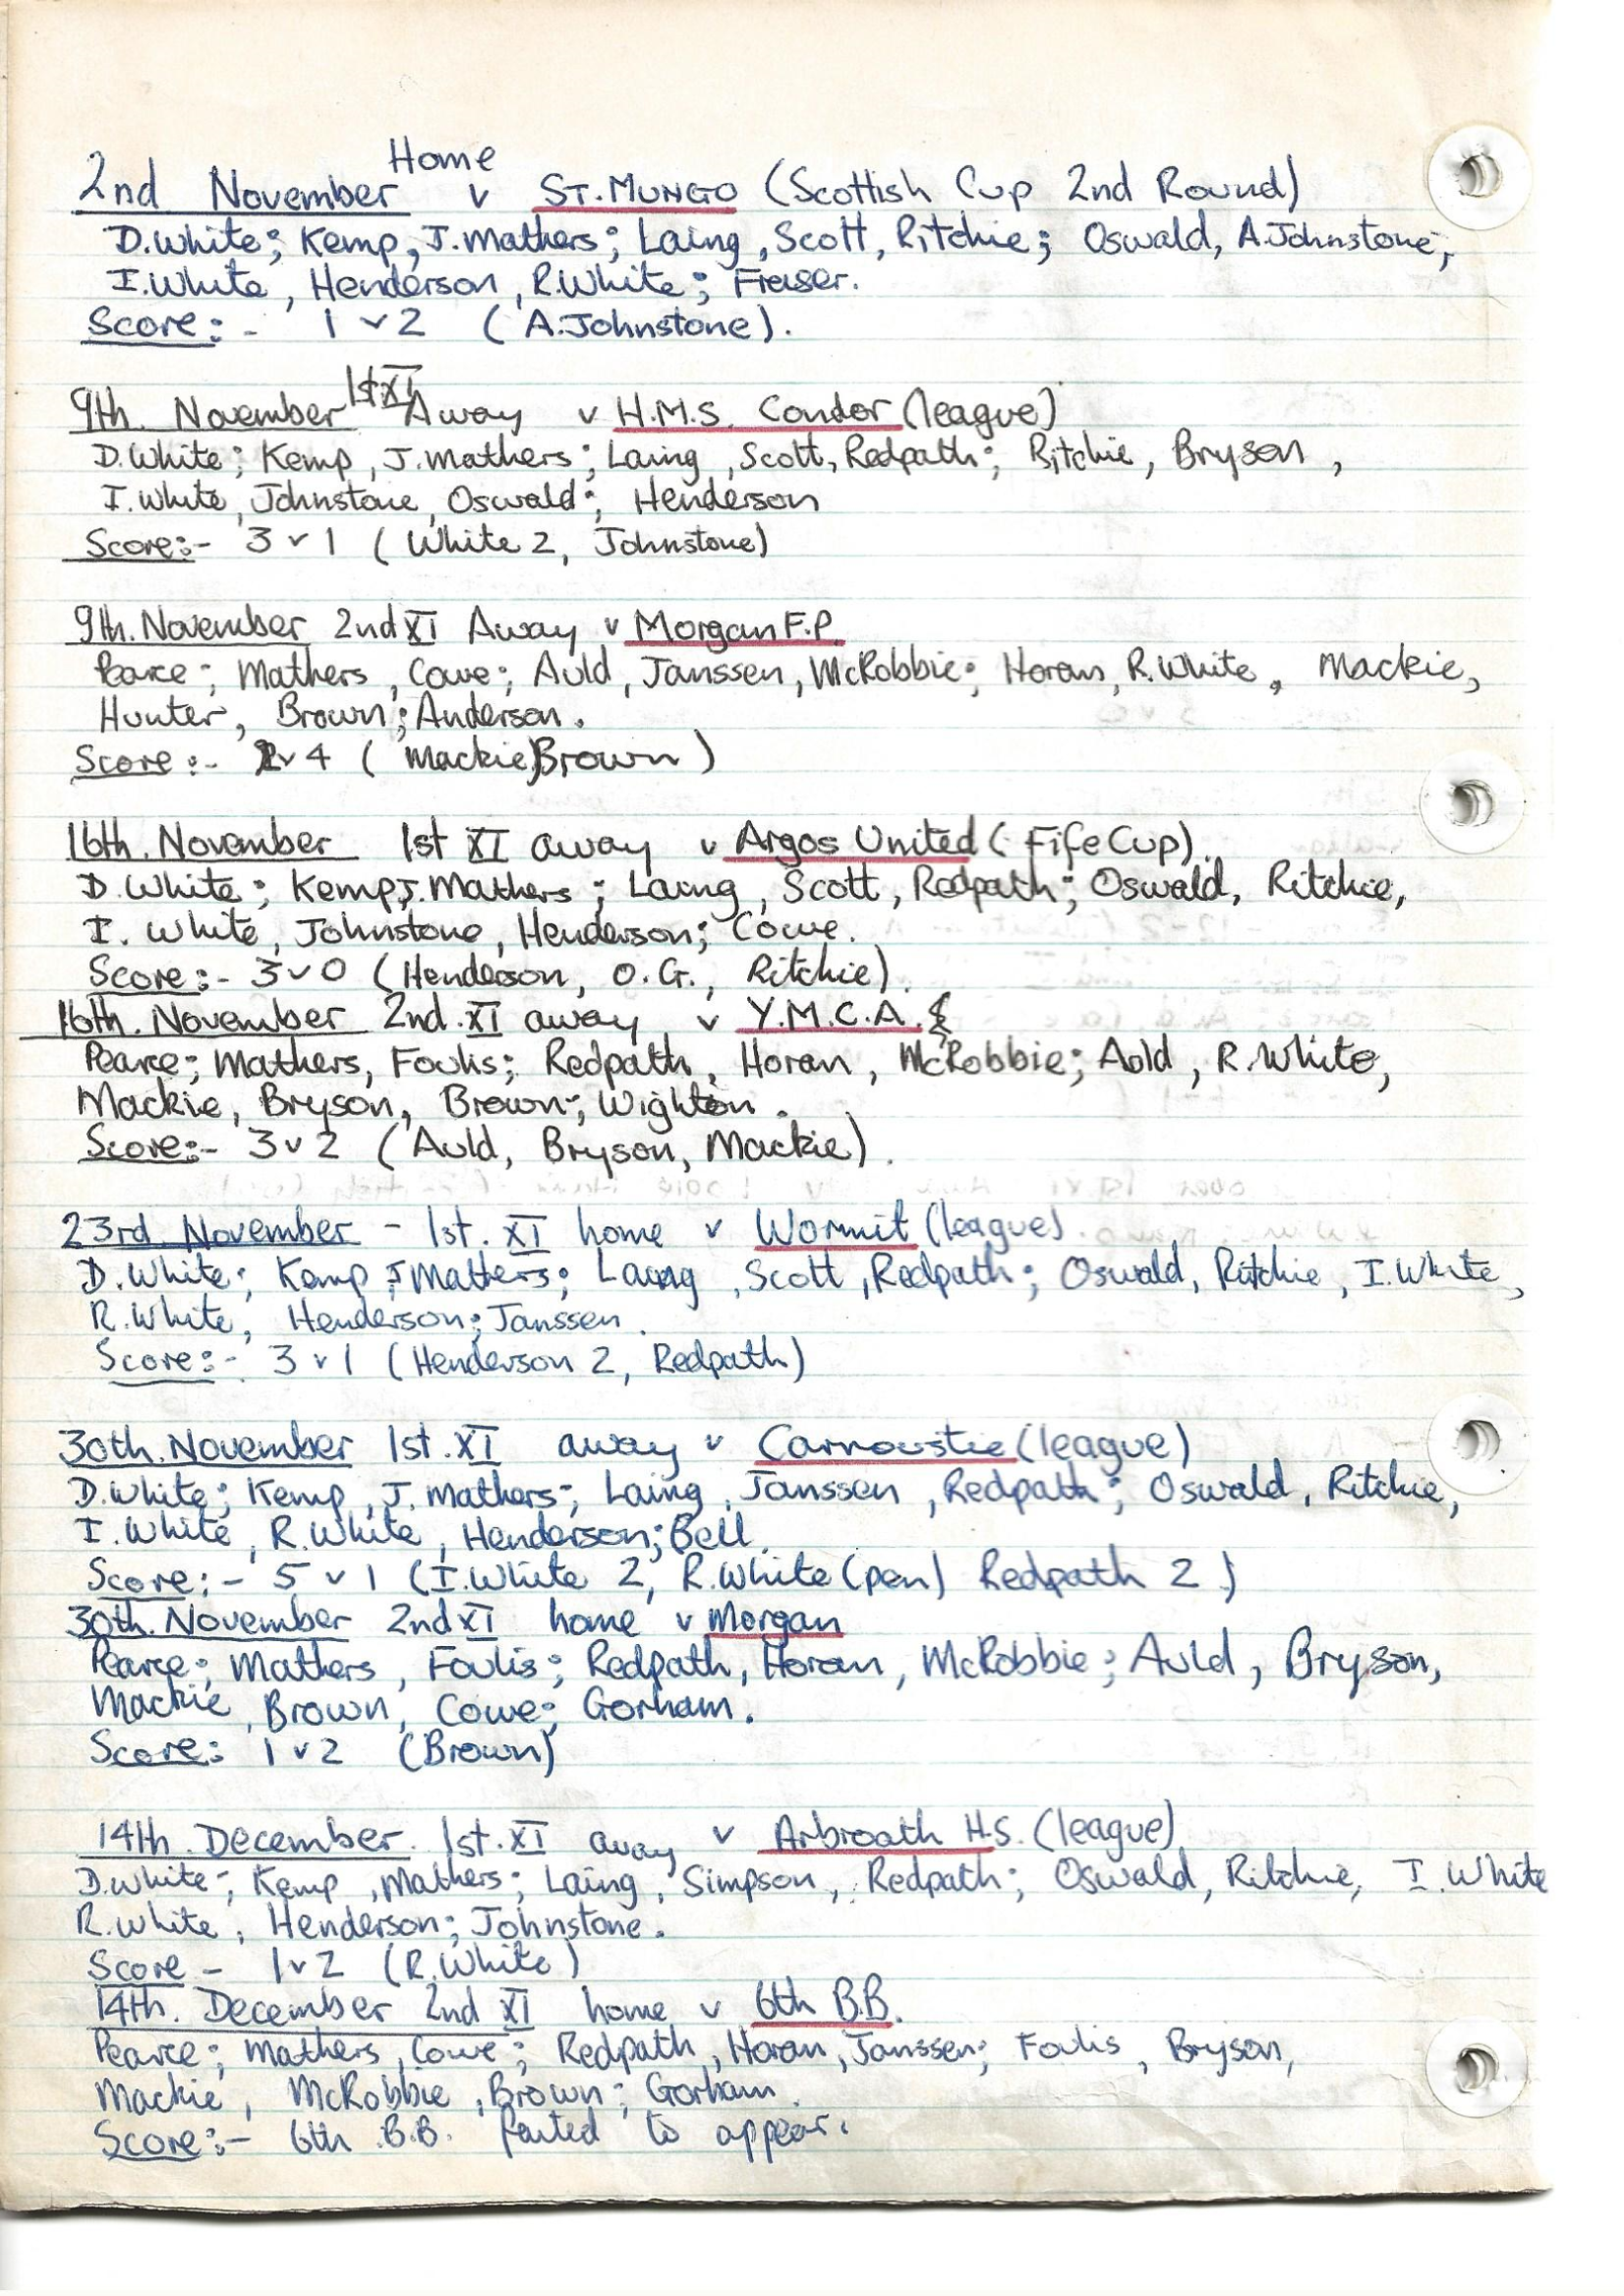 Home
2nd November v ST. MUNGO (Scottish Cup 2nd Round)
D.White; Kemp, J.Mathers; Laing, Scott, Ritchie; Oswald, A.Johnstone,
I.White, Henderson, R.White; Fraser.
Score:- 1 v 2 (A.Johnstone).
9th. November 1st XI Away v H.M.S. Condor (league)
D.White; Kemp, J.Mathers; Laing, Scott, Redpath; Ritchie, Bryson,
I.White, Johnstone, Oswald; Henderson
Score:- 3 v 1 (White 2, Johnstone)
9th. November 2nd XI Away v Morgan F.P.
Pearce; Mathers, Cowe; Auld, Janssen, McRobbie; Horan, R.White, Mackie,
Hunter, Brown; Anderson.
Score:- 2 v 4 (Mackie, Brown)
16th. November 1st XI away v Argos United (Fife Cup).
D.White; Kemp, J.Mathers; Laing, Scott, Redpath; Oswald, Ritchie,
I. White, Johnstone, Henderson; Cowe.
Score:- 3 v 0 (Henderson, O.G., Ritchie).
16th. November 2nd. XI away v Y.M.C.A.
Pearce; Mathers, Foulis; Redpath, Horan, McRobbie; Auld, R.White,
Mackie, Bryson, Brown; Wighton.
Score:- 3 v 2 (Auld, Bryson, Mackie).
23rd. November - 1st. XI home v Wormit (league).
D.White; Kemp, J Mathers; Laing, Scott, Redpath; Oswald, Ritchie, I.White,
R.White, Henderson; Janssen.
Score:- 3 v 1 (Henderson 2, Redpath)
30th. November 1st. XI away v Carnoustie (league)
D.White; Kemp, J. Mathers; Laing, Janssen, Redpath; Oswald, Ritchie,
I.White, R.White, Henderson; Bell.
Score:- 5 v 1 (I.White 2, R.White (pen) Redpath 2)
30th. November 2nd XI home v Morgan
Pearce; Mathers, Foulis; Redpath, Horan, McRobbie; Auld, Bryson,
Mackie, Brown, Cowe; Gorham.
Score: 1 v 2 (Brown)
14th. December 1st. XI away v Arbroath H.S. (league)
D.White; Kemp, Mathers; Laing, Simpson, Redpath; Oswald, Ritchie, I.White
R.White, Henderson; Johnstone.
Score - 1 v 2 (R.White)
14th. December 2nd XI home v 6th B.B.
Pearce; Mathers, Cowe; Redpath, Horan, Janssen; Foulis, Bryson,
Mackie, McRobbie, Brown; Gorham.
Score:- 6th B.B. failed to appear.